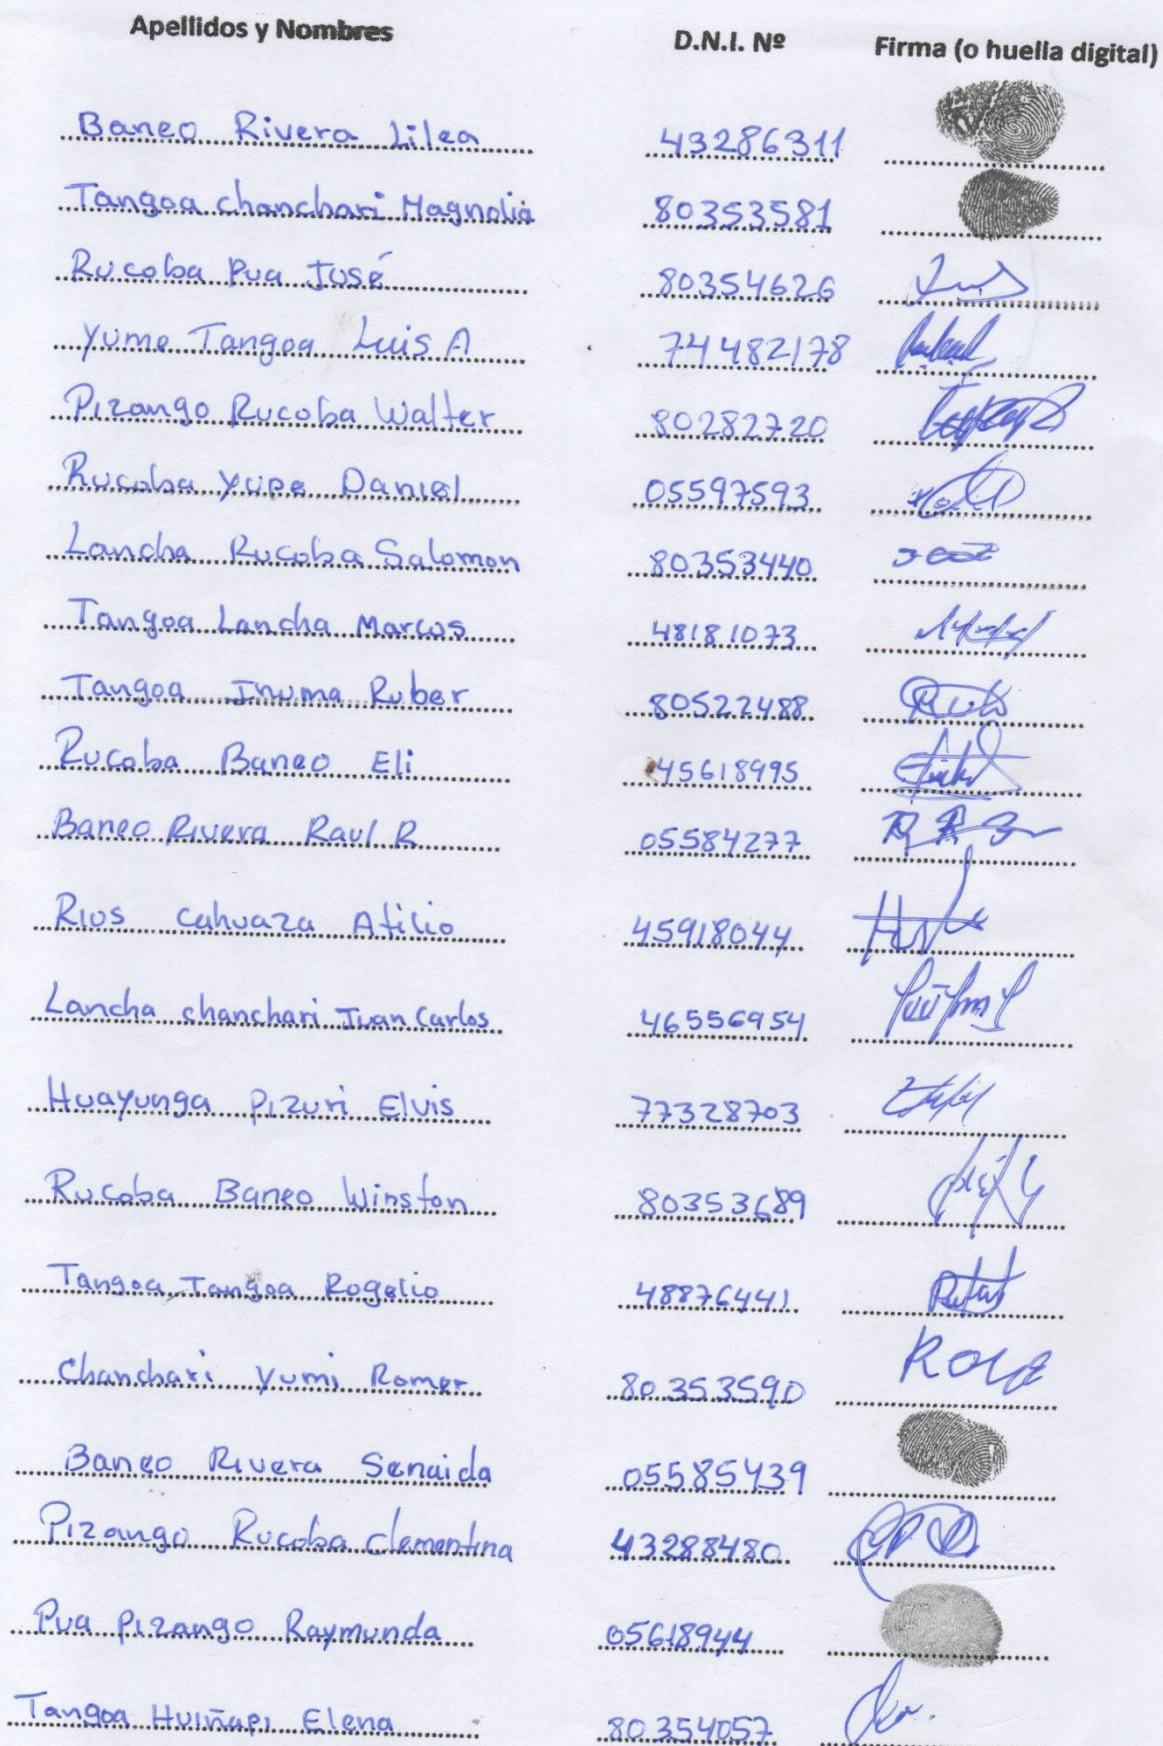 Apellidos y Nombres D.N.I. Nº Firma (o huella digital)
Baneo Rivera Lilea 43286311
Tangoa chanchari Magnolia 80353581
Rucoba Pua José 80354626
Yume Tangoa Luis A 74482178
Pizango Rucoba Walter 80282720
Rucoba Yupe Daniel 05597593
Lancha Rucoba Salomon 80353440
Tangoa Lancha Marcos 48181073
Tangoa Inuma Ruber 80522488
Rucoba Baneo Eli 45618995
Baneo Rivera Raul R 05584277
Rios Cahuaza Atilio 45918044
Lancha chanchari Juan Carlos 46556954
Huayunga Pizuri Elvis 77328703
Rucoba Baneo Winston 80353689
Tangoa Tangoa Rogelio 48876441
Chanchari Yumi Romer 80353590
Baneo Rivera Senaida 05585439
Pizango Rucoba Clementina 43288480
Pua Pizango Raymunda 05618944
Tangoa Huiñapi Elena 80354057